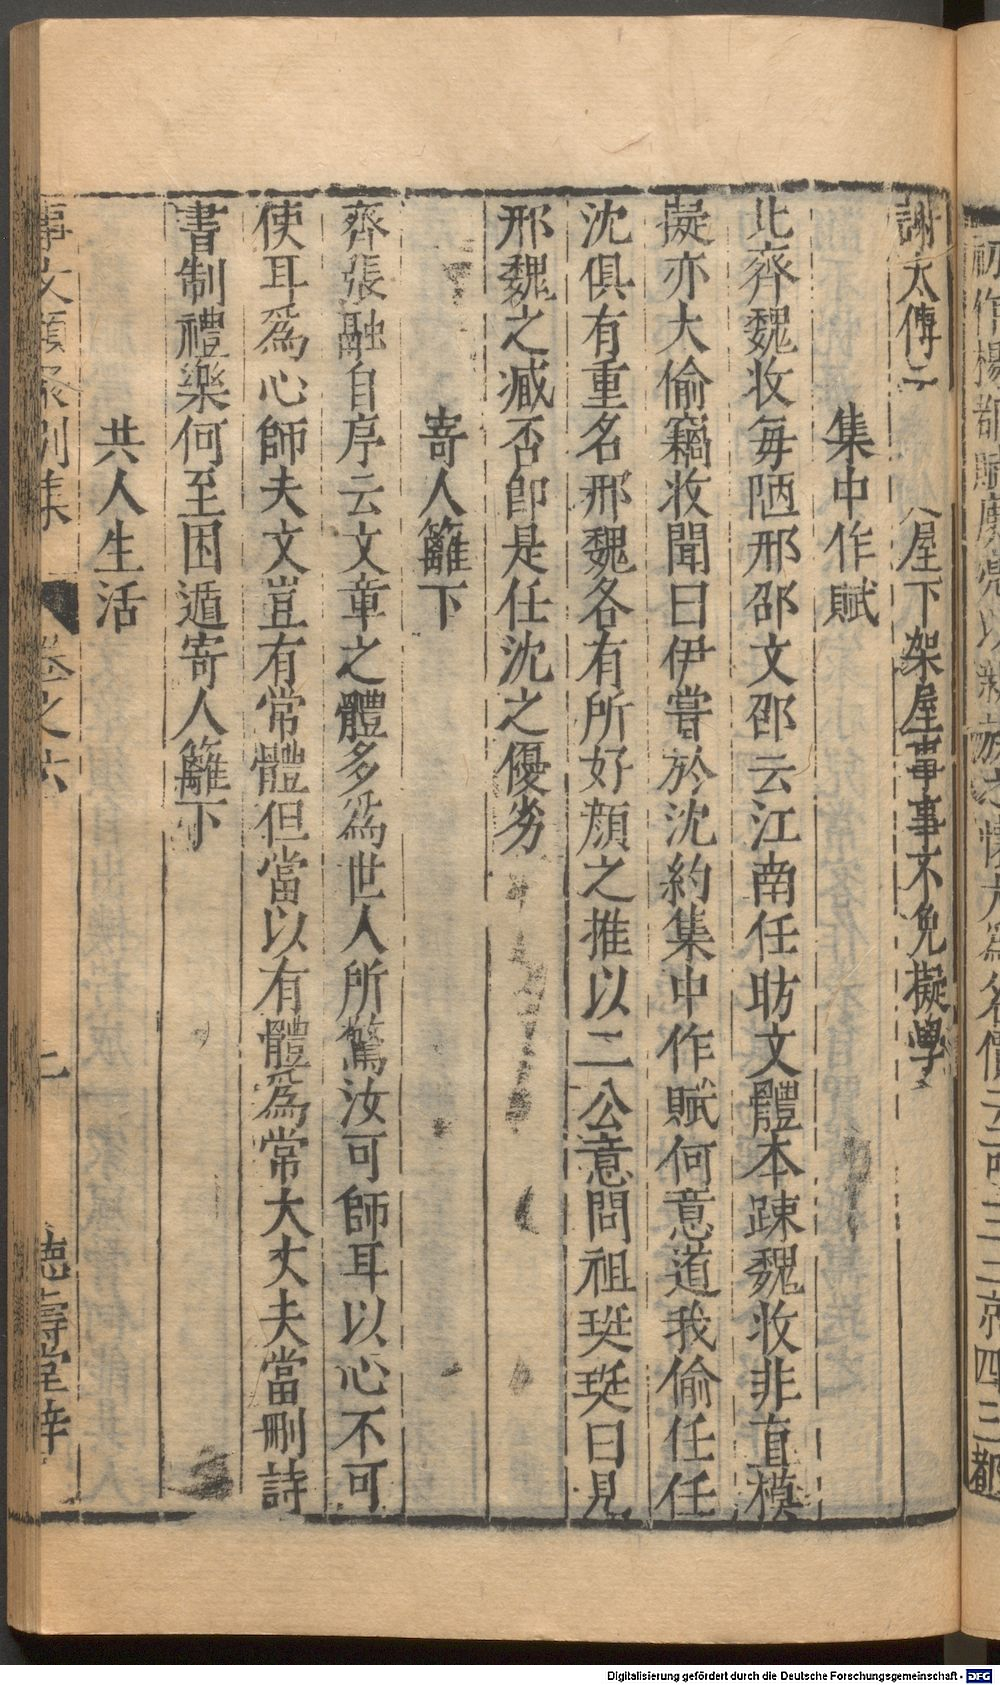 初作楊都賦庾亮以親族之懷大爲名價云可三二京四三都
謝太傅云 屋下架屋事事不免擬學
集中作賦
北齊魏收每陋邢邵文邵云江南任昉文體本踈魏收非直模
擬亦大偷竊收聞曰伊嘗於沈約集中作賦何意道我偷任任
沈俱有重名邢魏各有所好顔之推以二公意問祖珽珽曰見
邢魏之臧否即是任沈之優劣
寄人籬下
齊張融自序云文章之體多爲世人所驚汝可師耳以心不可
使耳爲心師夫文豈有常體但當以有體爲常大丈夫當刪詩
書制禮樂何至困遁寄人籬下
共人生活
事文類聚別集 卷之六 二 德壽堂梓
Digitalisierung gefördert durch die Deutsche Forschungsgemeinschaft - DFG